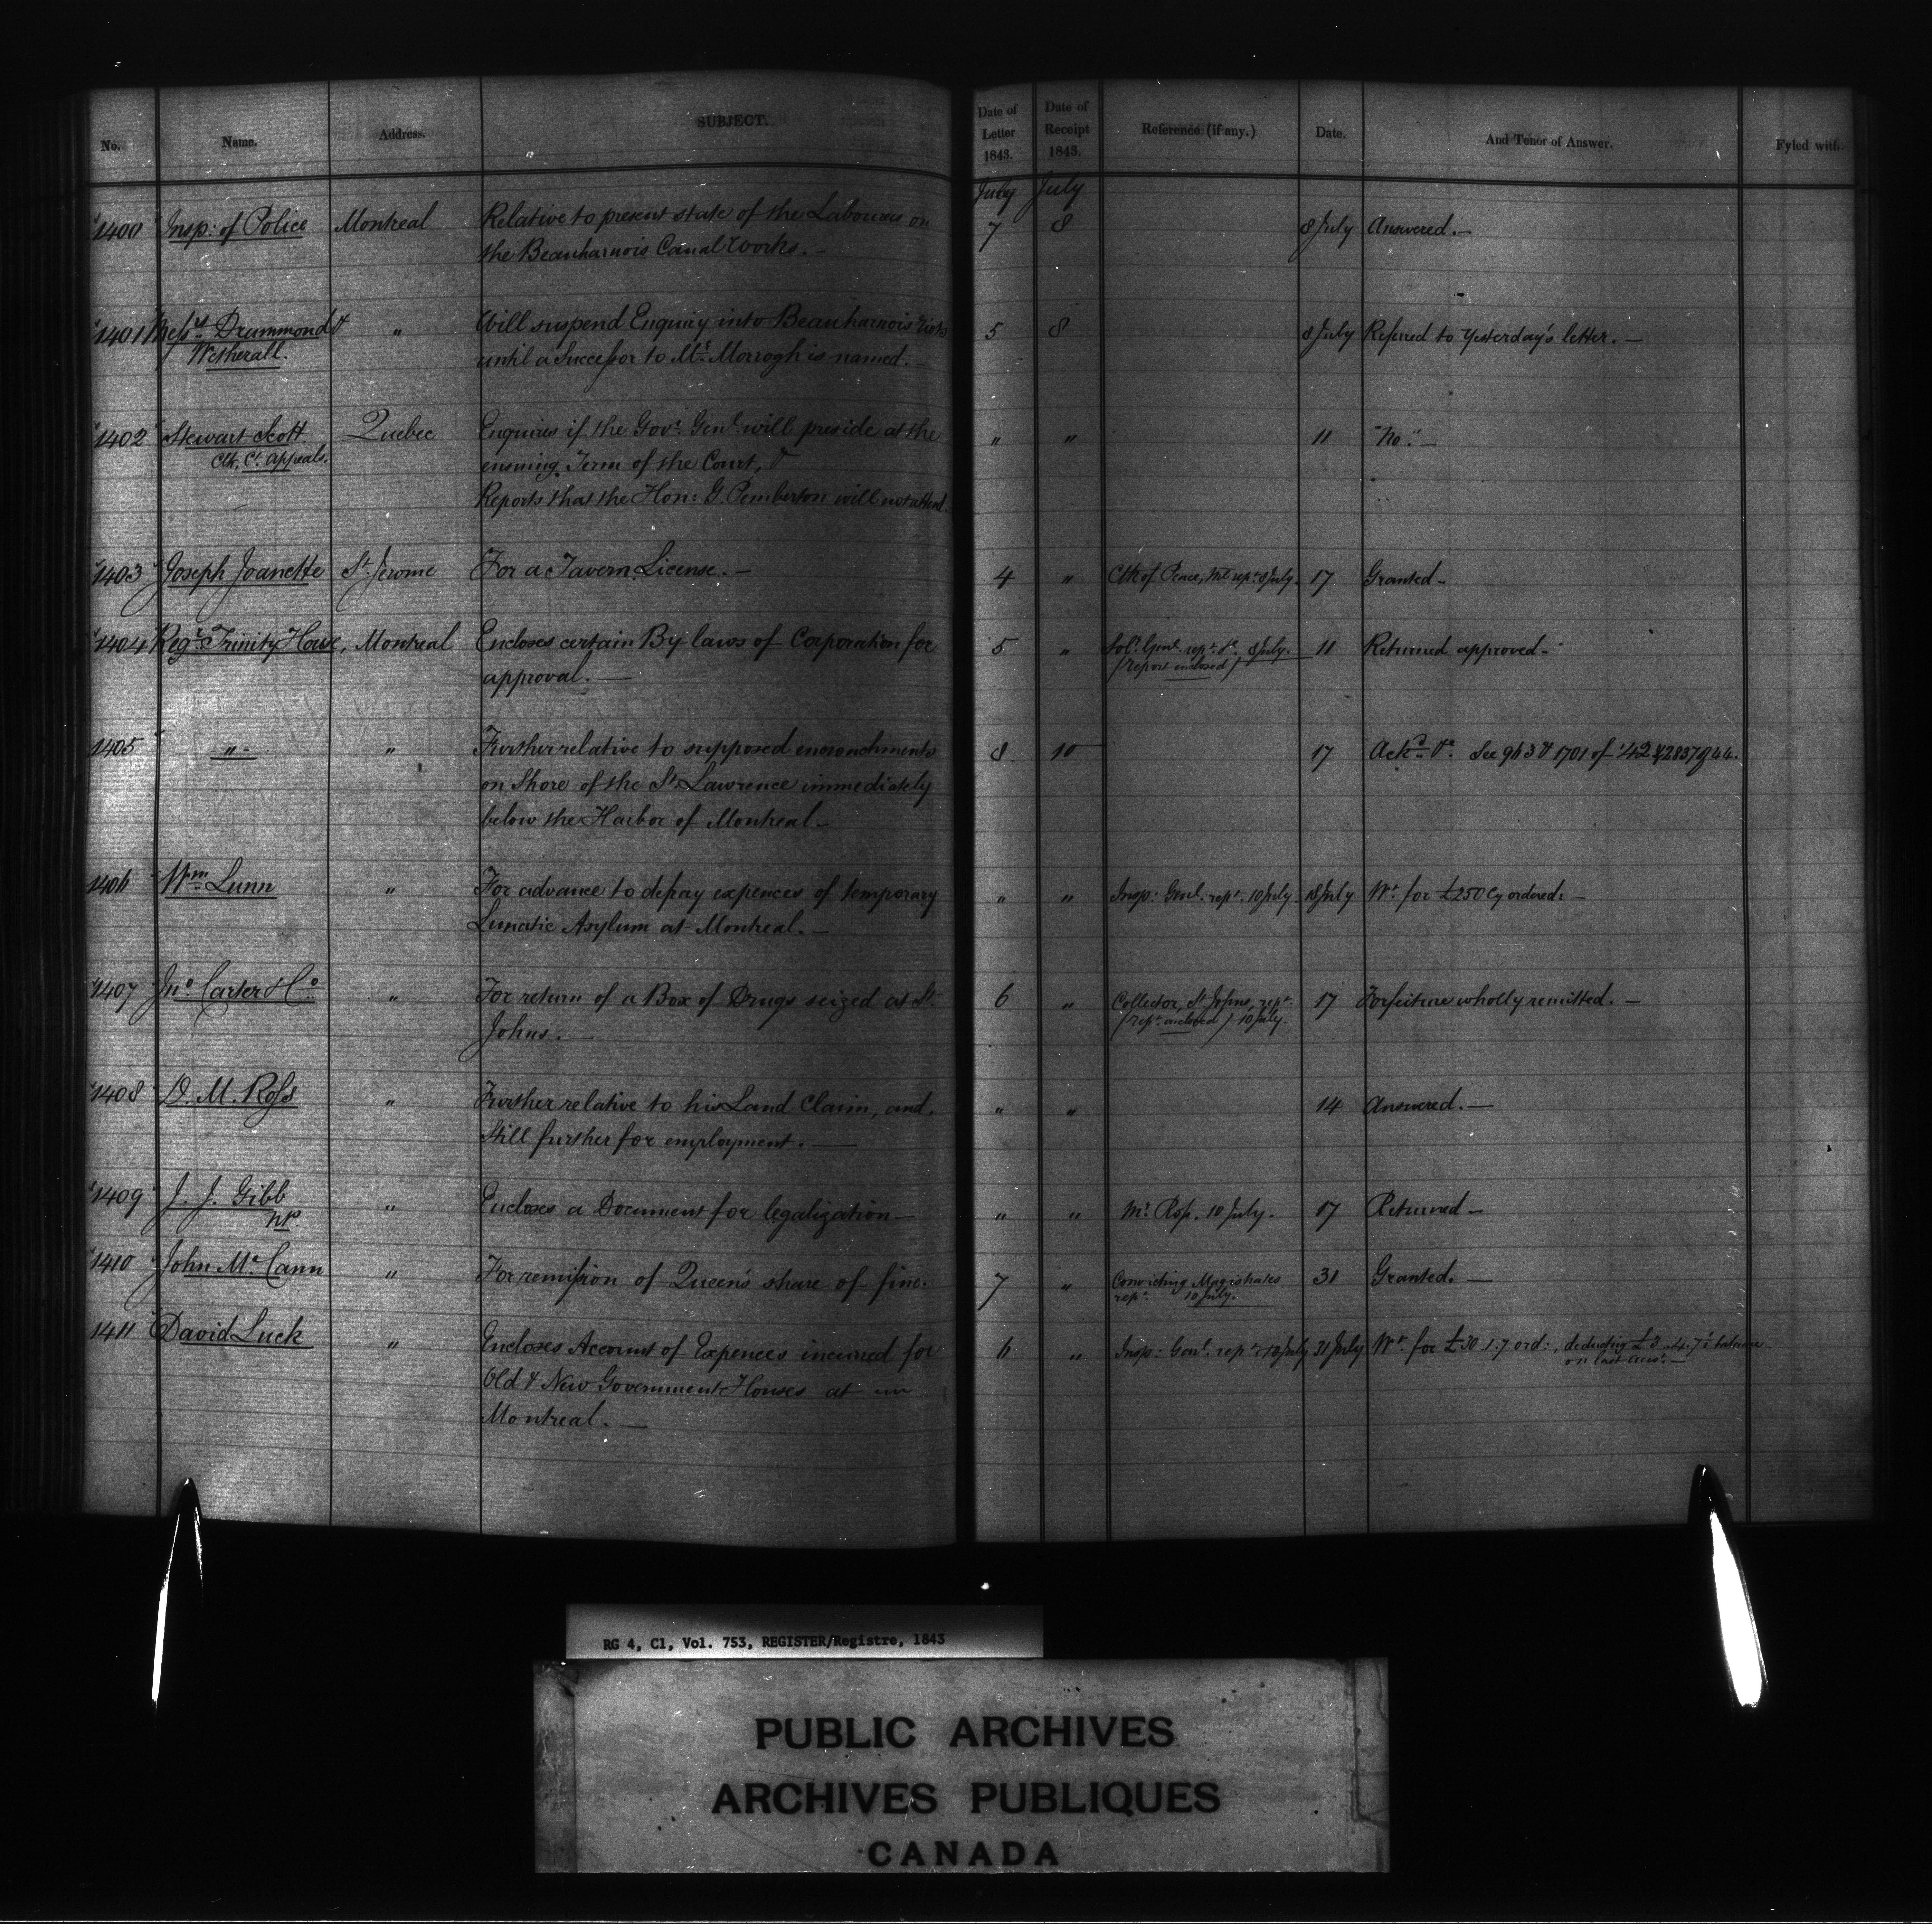 No. Name. Address. SUBJECT. Date of Letter 1843. Date of Receipt 1843. Reference (if any.) Date. And Tenor of Answer. Fyled with.
July July
1400 Insp: of Police Montreal Relative to present state of the Labourers on 7 8 8 July Answered.—
the Beauharnois Canal Works.—
1401 Messrs Drummond & " Will suspend Enquiry into Beauharnois Riots 5 8 8 July Refered to Yesterday's letter.—
Wetherall. until a Successor to Mr. Morrogh is named.—
1402 Stewart Scott Quebec Enquires if the Govr. Genl. will preside at the " " 11 "No."—
Clk. Ct. Appeals. ensuing Term of the Court, &
Reports that the Hon: G. Pemberton will not attend.
1403 Joseph Joanette St. Jerome For a Tavern License.— 4 " Clk of Peace, Ml rept. 8 July. 17 Granted—
1404 Regr. Trinity House, Montreal Encloses certain By laws of Corporation for 5 " Solr. Genl. rept. 8 July. 11 Returned approved—
approval.— (report enclosed)
1405 " " Further relative to supposed encroachments 8 10 17 Ackd. &c. See 963 & 1701 of '42 & 2837 of 44.
on Shore of the St. Lawrence immediately
below the Harbor of Montreal—
1406 Wm Lunn " For advance to defray expences of temporary " " Insp: Genl. rept. 10 July. 18 July Wt. for £250 Cy ordered.—
Lunatic Asylum at Montreal.—
1407 Jno. Carter & Co. " For return of a Box of Drugs seized at St. 6 " Collector, St. Johns, rept. 17 Forfeiture wholly remitted.—
Johns.— (rept. enclosed) 10 July.
1408 D. M. Ross " Further relative to his Land Claim, and " " 14 Answered.—
Still further for employment.—
1409 J. J. Gibb " Encloses a Document for legalization— " " Mr. Ross, 10 July. 17 Returned—
NP.
1410 John McCann " For remission of Queen's share of fine. 7 " Convicting Magistrates 31 Granted.—
rept. 10 July.
1411 David Luck " Encloses Account of Expences incurred for 6 " Insp: Genl. rept. 10 July 31 July Wt. for £30.1.7 ord:, deducting £3.4.7 balance
Old & New Government Houses at on last acct.—
Montreal.—
RG 4, C1, Vol. 753, REGISTER/Registre, 1843
PUBLIC ARCHIVES
ARCHIVES PUBLIQUES
CANADA